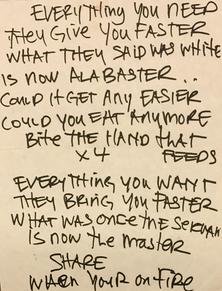 EVERYTHING YOU NEED
THEY GIVE YOU FASTER
WHAT THEY SAID WAS WHITE
IS NOW ALABASTER..
COULD IT GET ANY EASIER
COULD YOU EAT ANYMORE
BITE THE HAND THAT
x4 FEEDS
EVERYTHING YOU WANT
THEY BRING YOU FASTER
WHAT WAS ONCE THE
IS NOW THE MASTER
SHARE
WHEN YOUR ON FIRE